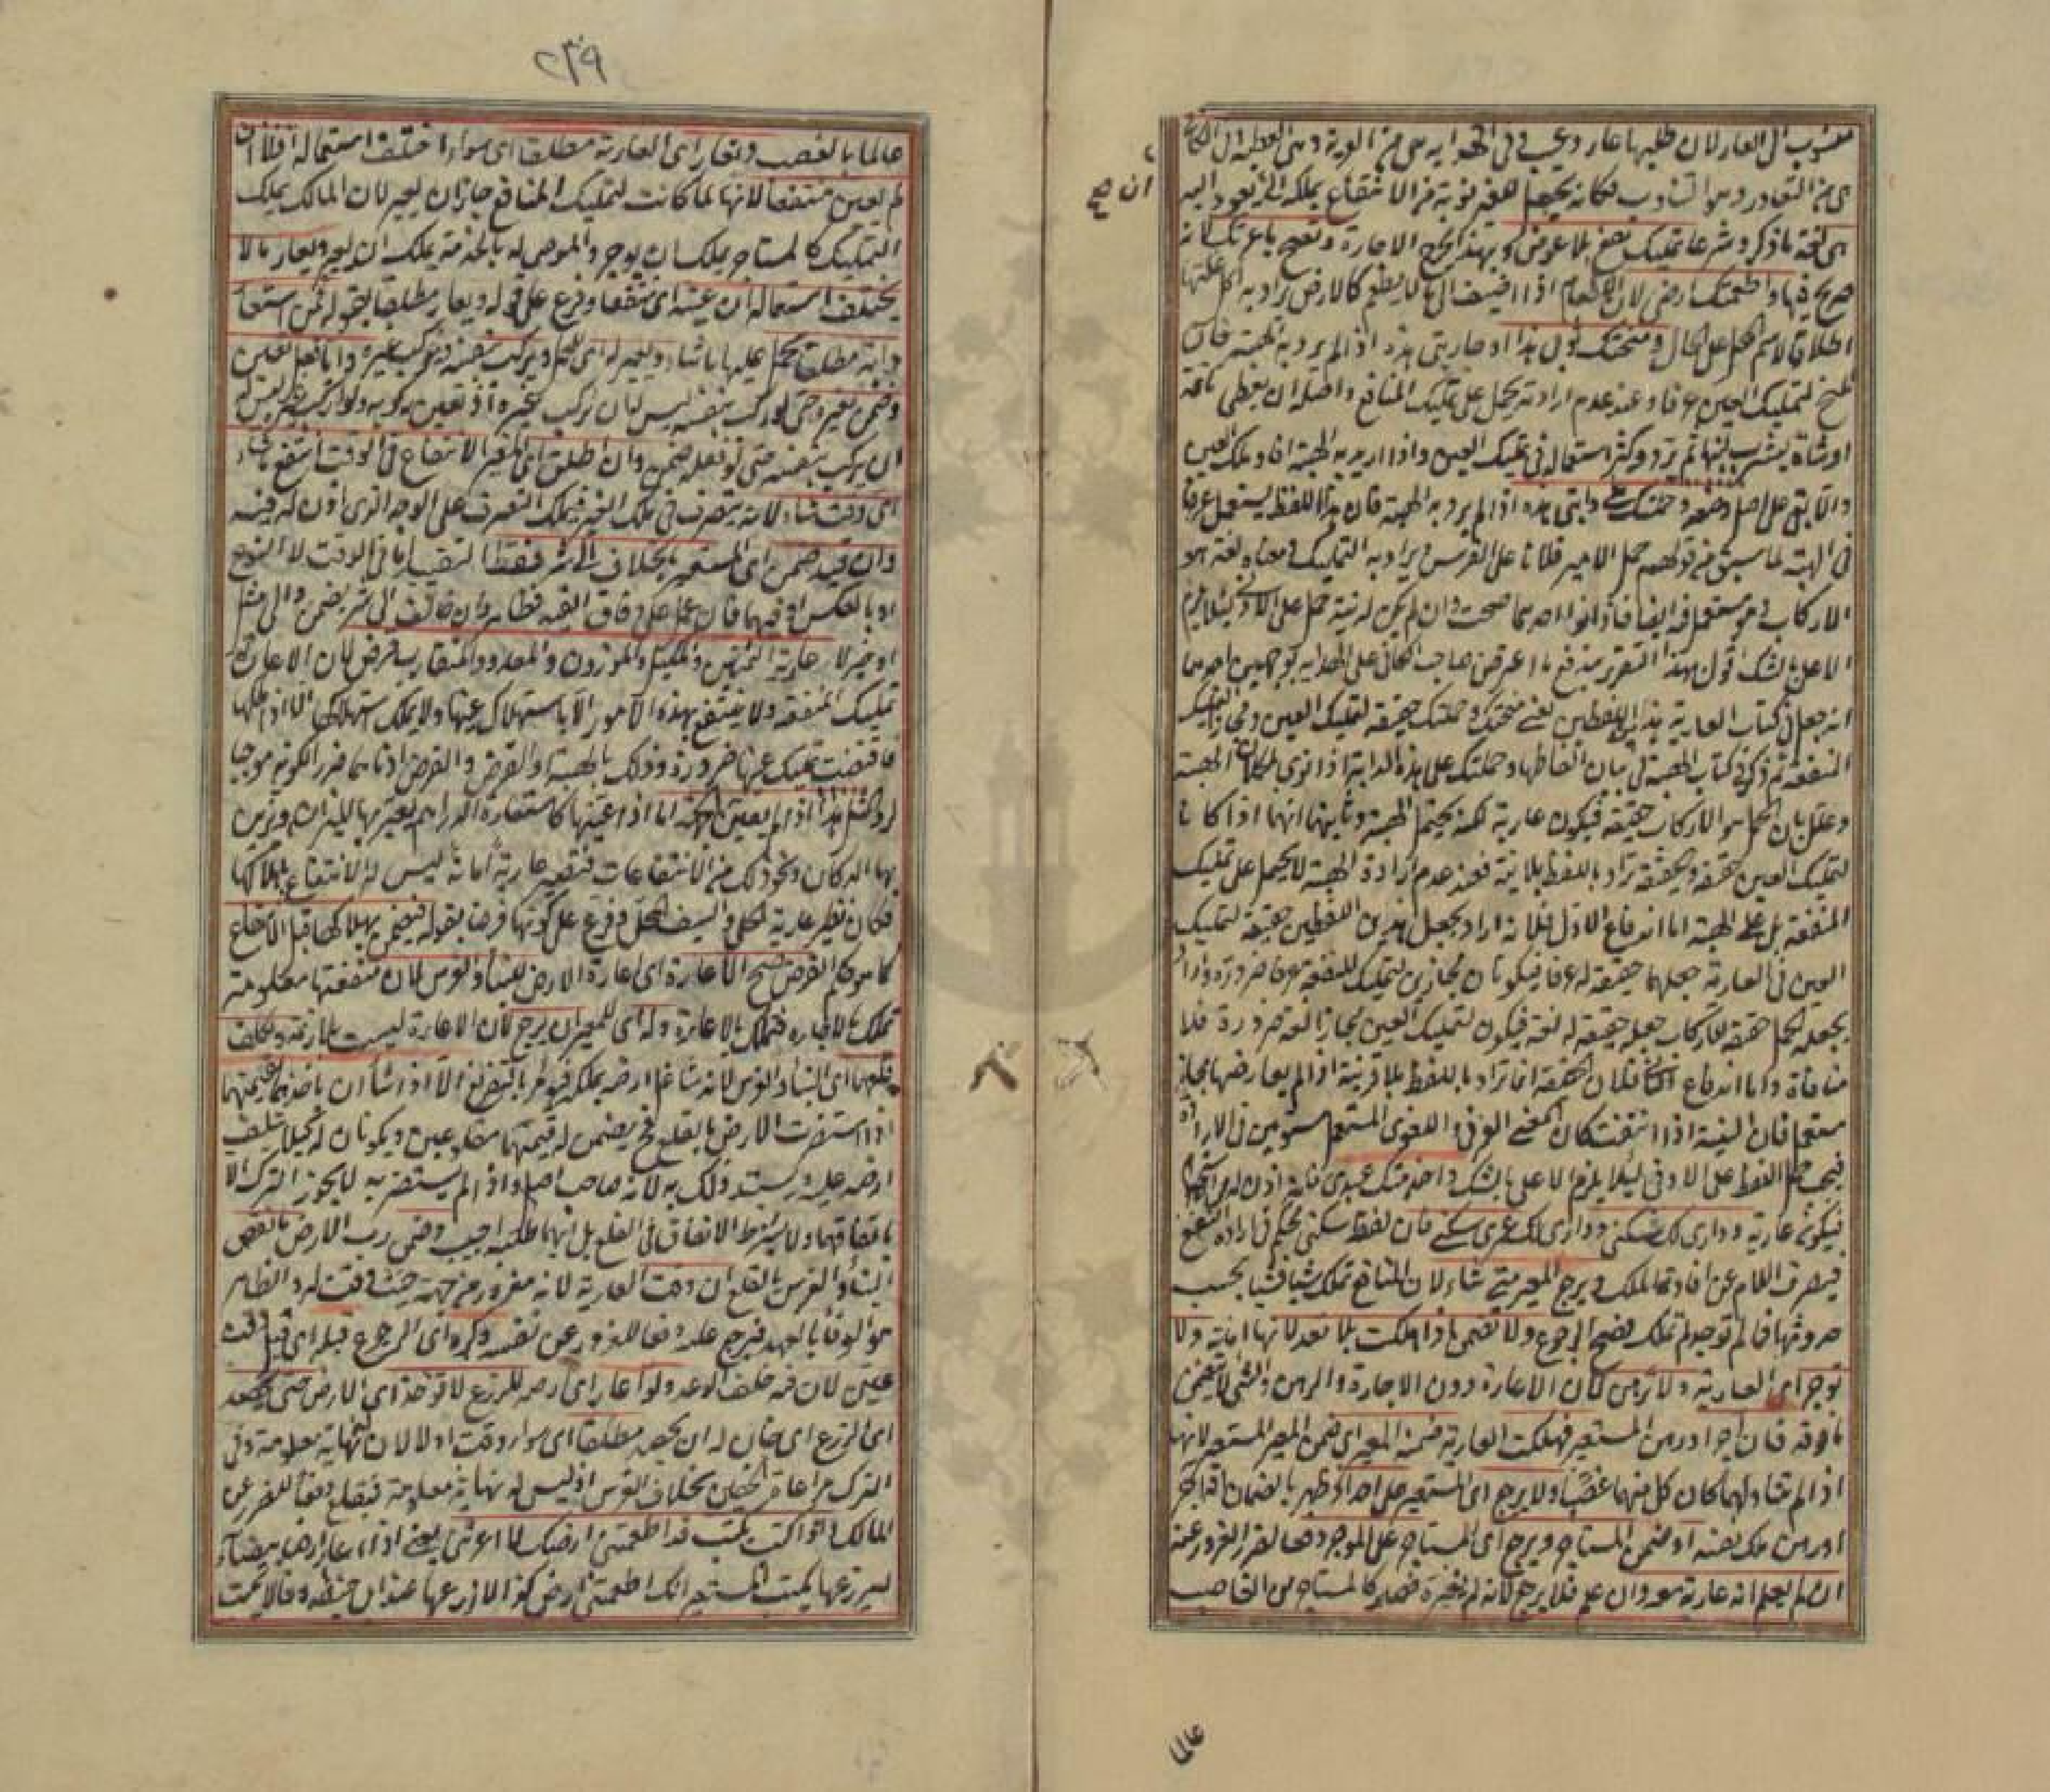 منسوب الى العار لان طلبها عار وعيب وفي الهداية هي من العرية وهي العطية
هي من التعاور وهو التناوب فكانه يجعل للغير نوبة من الانتفاع بملكه الى ان يعود اليه
ان صح
هي لغة ما ذكر وشرعا تمليك نفع بلا عوض وبهذا يخرج الاجارة وتصح باعرتك لانه
صريح فيها واطعمتك ارضي لان الاطعام اذا اضيف الى ما لا يطعم كالارض يراد به اكل غلتها
اطلاقا لاسم المحل على الحال ومنحتك ثوبي هذا او جاريتي هذه اذا لم يرد به الهبة فان
المنح لتمليك العين عرفا وعند عدم ارادته يحمل على تمليك المنافع واصله ان يعطي ناقة
او شاة ليشرب لبنها ثم ترد وكثر استعماله في تمليك العين واذا اريد به الهبة افاد ملك العين
والا بقي على اصل وضعه وحملتك على دابتي هذه اذا لم يرد به الهبة فان هذا اللفظ يستعمل عرفا
في الهبة لما سبق من قولهم حمل الامير فلانا على الفرس يراد به التمليك ومعناه لغة هو
الاركاب فهو مستعمل فيه ايضا فاذا نوى احدهما صحت وان لم يكن له نية حمل على الادنى لئلا يلزم
الاعلى بالشك اقول بهذا التقرير يندفع ما اعترض صاحب الكافي على الهداية بوجهين احدهما
انه جعل في كتاب العارية هذين اللفظين يعني منحتك وحملتك حقيقة لتمليك العين ومجازا لتمليك
المنفعة ثم ذكر في كتاب الهبة في بيان الفاظها وحملتك على هذه الدابة اذا نوى بالحملان الهبة
وعلل بان الحمل هو الاركاب حقيقة فيكون عارية لكنه يحتمل الهبة وثانيهما انهما اذا كانا
لتمليك العين حقيقة والحقيقة تراد باللفظ بلا نية فعند عدم ارادة الهبة لا يحمل على تمليك
المنفعة بل على الهبة اما اندفاع الاول فلانه اراد بجعل هذين اللفظين حقيقة لتمليك
العين في العارية جعلهما حقيقة له عرفا فيكونان مجازين لتمليك المنفعة عرفا ضرورة واراد
بجعله الحمل حقيقة للاركاب جعله حقيقة له لغة فيكون لتمليك العين مجازا لغة ضرورة فلا
منافاة واما اندفاع الثاني فلان الحقيقة انما تراد باللفظ بلا قرينة اذا لم يعارضها مجاز
مستعمل فان النية اذا انتفت كان المعنى العرفي واللغوي المستعمل مستويين في الارادة
فيجب حمل اللفظ على الادنى لئلا يلزم الاعلى بالشك واخدمتك عبدي فانه اذن له في استخدامه
فيكون عارية وداري لك سكنى وداري لك عمرى سكنى فان لفظ سكنى محكم في ارادة النفع
فيصرف اللام عن افادة الملك ويرجع المعير متى شاء لان المنافع تملك شيئا فشيئا بحسب
حدوثها فما لم توجد لم تملك فصح الرجوع ولا تضمن اذا هلكت بلا تعد لانها امانة ولا
توجر اي العارية ولا ترهن لان الاعارة دون الاجارة والرهن والشيء لا يتضمن
ما فوقه فان آجر او رهن المستعير فهلكت العارية ضمنه المعير اي ضمن المعير المستعير لانها
اذا لم تتناولهما كان كل منهما غصبا ولا يرجع اي المستعير على احد اذ ظهر بالضمان انه آجر
او رهن ملك نفسه او ضمن المستاجر ويرجع اي المستاجر على الموجر دفعا لضرر الغرور عنه
ان لم يعلم انه عارية معه وان علم فلا يرجع لانه لم يغره فصار كالمستاجر من الغاصب
عالما
٢٣٩
عالما بالغصب وتعار اي العارية مطلقا اي سواء اختلف استعماله او لا ان
لم يعين منتفعا لانها لما كانت لتمليك المنافع جاز ان يعير لان المالك يملك
التمليك كالمستاجر يملك ان يوجر والموصى له بالخدمة يملك ان يعير ويعار ما لا
يختلف استعماله ان عينه اي منتفعا وفرع على قوله ويعار مطلقا بقوله فمن استعار
دابة مطلقا يحمل عليها ما شاء ويعير له اي للحمل ويركب بنفسه ويركب غيره وايا فعل تعين
وضمن بغيره حتى لو ركب بنفسه ليس له ان يركب غيره اذ تعين ركوبه ولو اركب غيره ليس له
ان يركب بنفسه حتى لو فعله ضمن وان اطلق اي المعير الانتفاع في الوقت انتفع ما شاء
اي وقت شاء لانه يتصرف في ملك الغير فيملك التصرف على الوجه الذي اذن له فيه
وان قيد ضمن اي المستعير بالخلاف الى شر فقط التقييد اما في الوقت لا النوع
او بالعكس او فيهما فان عمل على وفاق القيد فظاهر وان خالف الى شر يضمن والى مثل
او خير لا عارية الثمنين والمكيل والموزون والمعدود المتقارب قرض لان الاعارة
تمليك المنفعة ولا ينتفع بهذه الامور الا باستهلاك عينها ولا يملك استهلاكها الا اذا ملكها
فاقتضت تمليك عينها ضرورة وذلك بالهبة او القرض والقرض ادناهما ضررا لكونه موجبا
لرد المثل هذا اذا لم يعين الجهة اما اذا عينها كاستعارة الدراهم ليعير بها الميزان ويزين
بها الدكان ونحو ذلك من الانتفاعات فتصير عارية امانة ليس له الانتفاع باهلاكها
فكان نظير عارية الحلي والسيف المحلى وفرع على كونها قرضا بقوله فيضمن بهلاكها قبل الانتفاع
كما هو حكم القرض صح الاعارة اي اعارة الارض للبناء والغرس لان منفعتها معلومة
تملك بالاجارة فتملك بالاعارة وله اي للمعير ان يرجع لان الاعارة ليست بلازمة ويكلف
قلعهما اي البناء والغرس لانه شاغل ارضه بملكه فيؤمر بالتفريغ الا اذا شاء ان ياخذهما بقيمتهما
اذا استضرت الارض بالقلع فح يضمن له قيمتهما مقلوعين ويكونان له كيلا يتلف
ارضه عليه ويستبد ذلك به لانه صاحب اصل واذا لم يستضر به لا يجوز الترك الا
باتفاقهما ولا يشترط الاتفاق في القلع بل ايهما طلبه اجيب وضمن رب الارض ما نقص
البناء والغرس بالقلع ان وقت العارية لانه مغرور من جهته حيث وقت له والظاهر
هو الوفاء بالعهد فيرجع عليه دفعا للغرور عن نفسه وكره اي الرجوع قبله اي قبل وقت
عين لان فيه خلف الوعد ولو اعار اي ارضه للزرع لا توخذ اي الارض حتى يحصد
اي الزرع اي حان له ان يحصد مطلقا اي سواء وقت او لا لان له نهاية معلومة وفي
الترك مراعاة الحقين بخلاف الغرس اذ ليس له نهاية معلومة فيقلع دفعا للضرر عن
المالك اذا كتب يكتب قد اطعمتني ارضك لا اعرتني يعني اذا اعار ارضا بيضاء
ليزرعها يكتب المستعير انك اطعمتني ارض كذا لازرعها عند ابي حنيفة وقالا يكتب